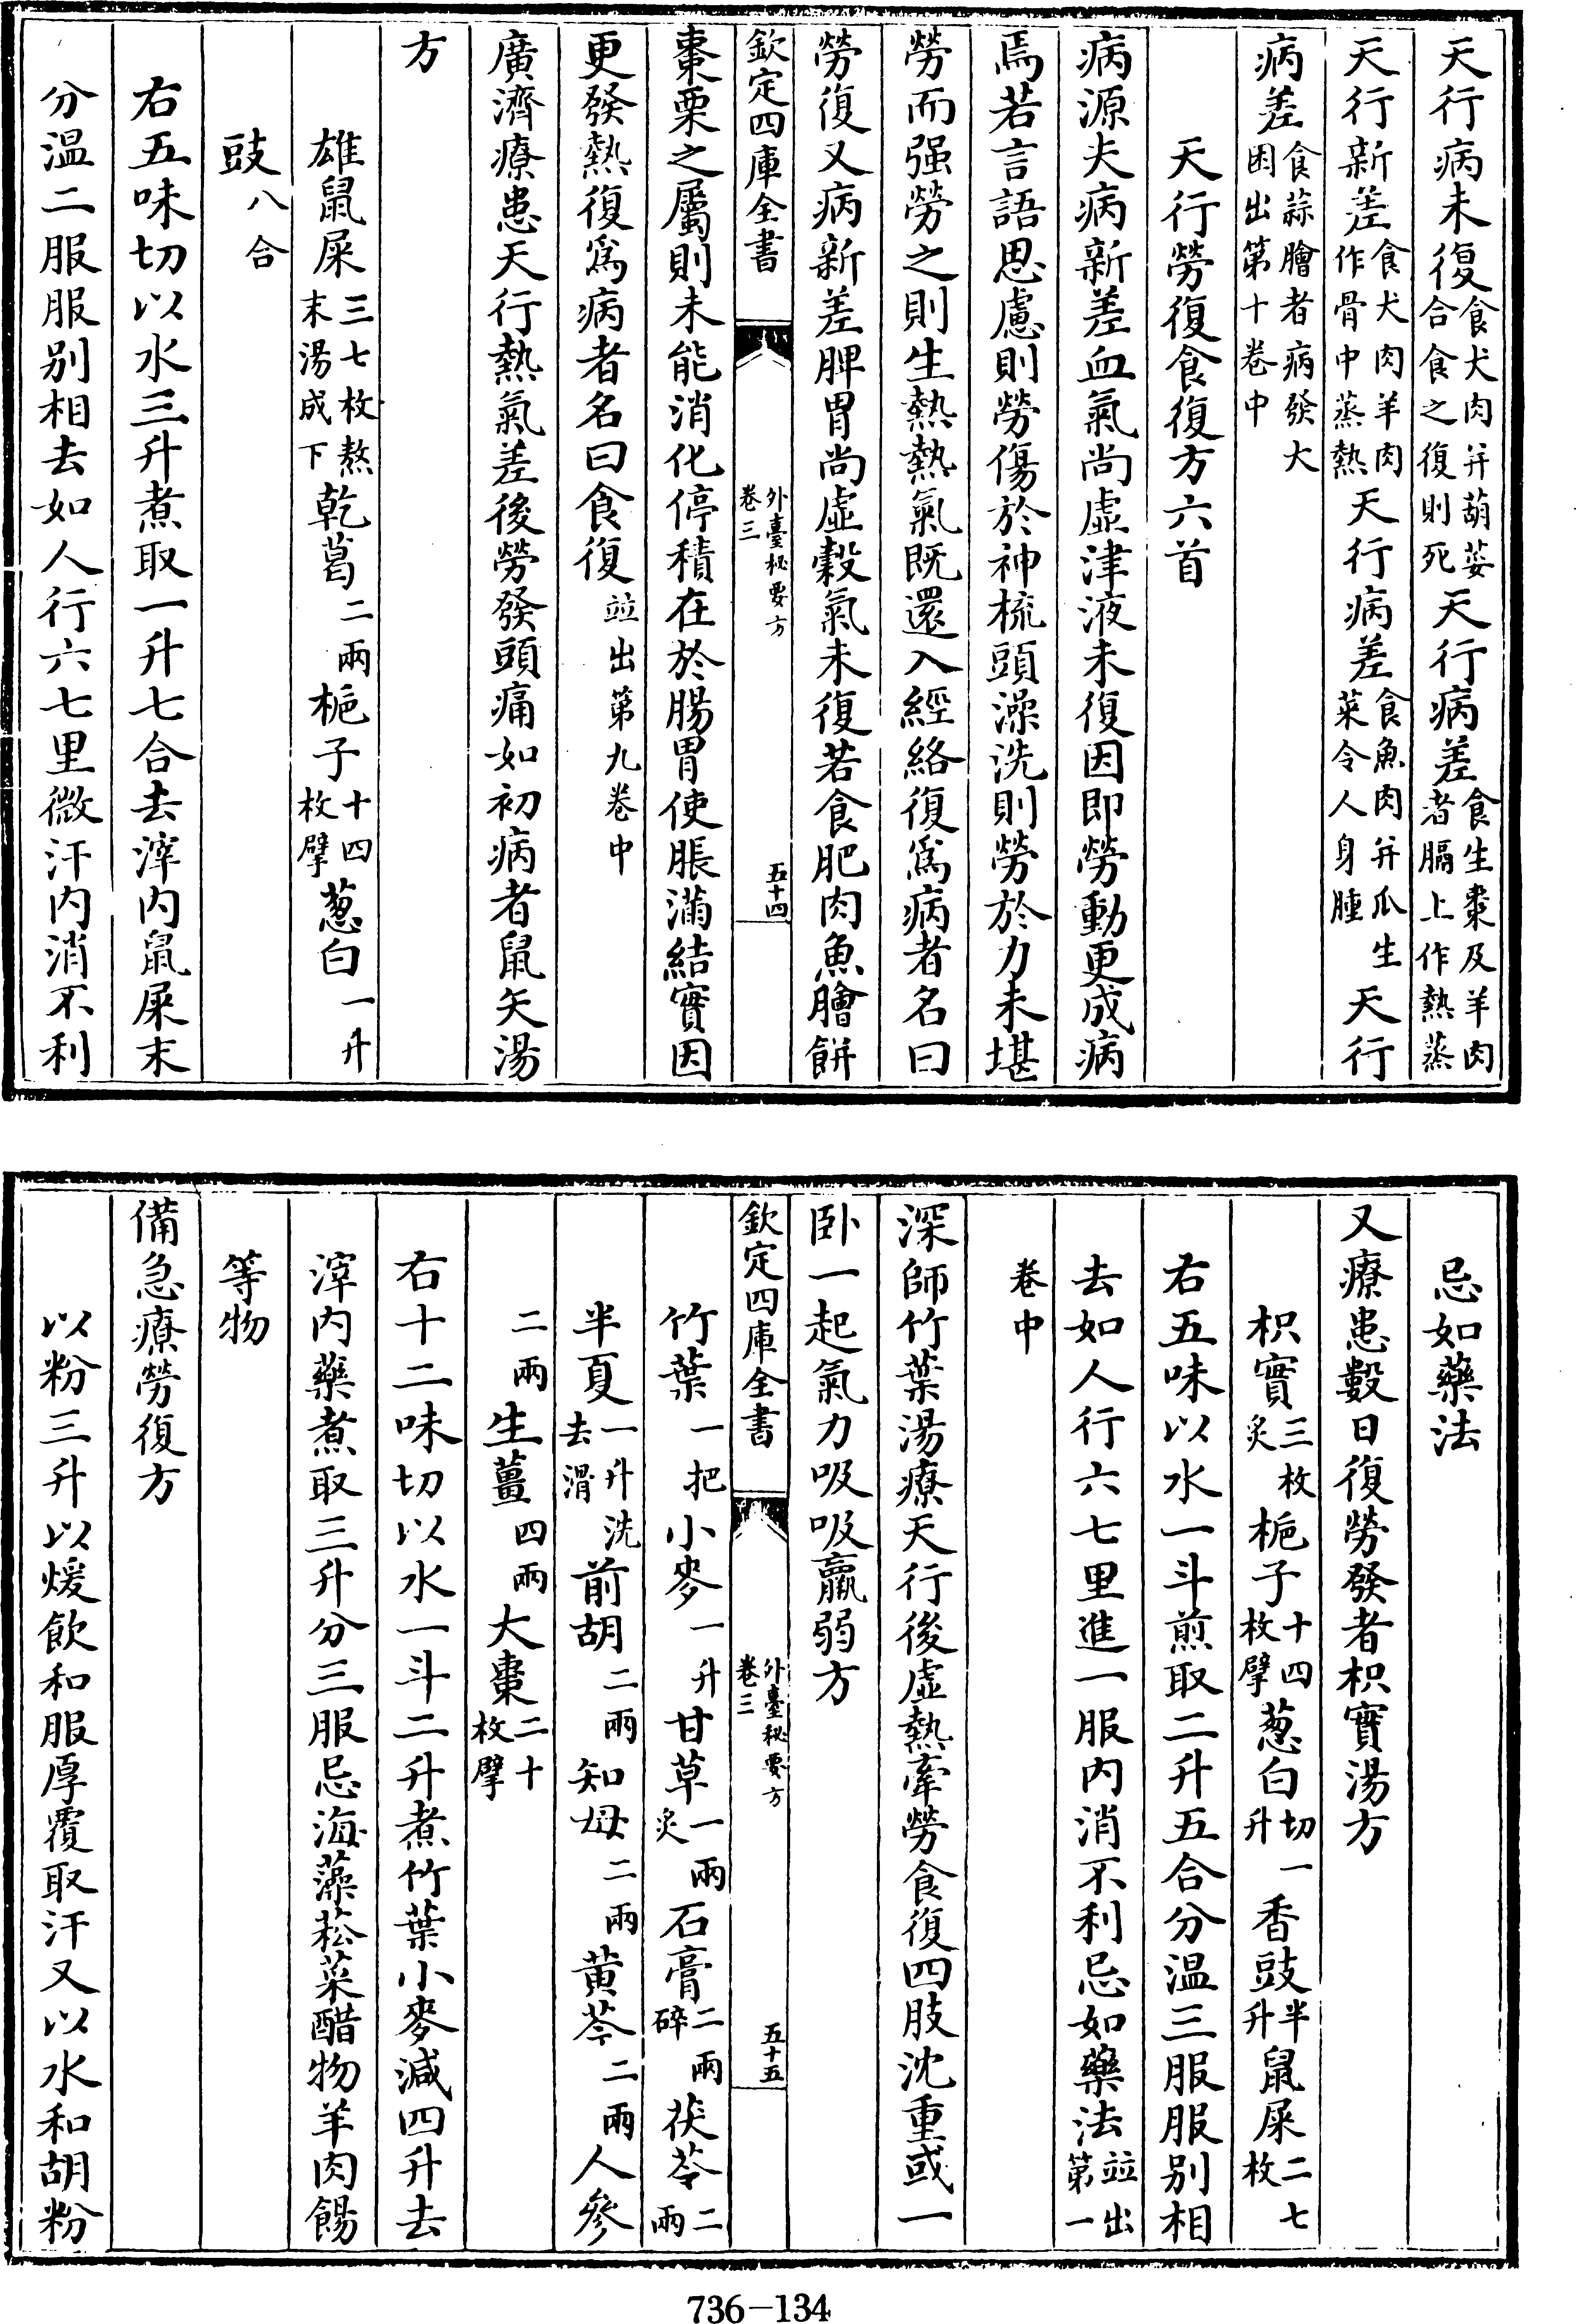 天行病未復食犬肉并葫荽合食之復則死天行病差食生棗及羊肉者膈上作熱蒸
天行新差食犬肉羊肉作骨中蒸熱天行病差食魚肉并瓜生菜令人身腫天行
病差食蒜膾者病發大困出第十卷中
天行勞復食復方六首
病源夫病新差血氣尚虛津液未復因即勞動更成病
焉若言語思慮則勞傷於神梳頭澡洗則勞於力未堪
勞而强勞之則生熱熱氣既還入經絡復為病者名曰
勞復又病新差脾胃尚虛穀氣未復若食肥肉魚膾餅
欽定四庫全書
外臺秘要方
卷三
五十四
棗栗之屬則未能消化停積在於腸胃使脹滿結實因
更發熱復為病者名曰食復竝出第九卷中
廣濟療患天行熱氣差後勞發頭痛如初病者鼠矢湯
方
雄鼠屎三七枚熬末湯成下乾葛二兩梔子十四枚擘葱白一升
豉八合
右五味切以水三升煮取一升七合去滓内鼠屎末
分温二服服别相去如人行六七里微汗内消不利
忌如藥法
又療患數日復勞發者枳實湯方
枳實三枚炙梔子十四枚擘葱白切一升香豉半升鼠屎二七枚
右五味以水一斗煎取二升五合分温三服服别相
去如人行六七里進一服内消不利忌如藥法竝出第一
卷中
深師竹葉湯療天行後虛熱牽勞食復四肢沈重或一
卧一起氣力吸吸羸弱方
欽定四庫全書
外臺秘要方
卷三
五十五
竹葉一把小麥一升甘草一兩炙石膏二兩碎茯苓二兩
半夏一升洗去滑前胡二兩知母二兩黄芩二兩人參
二兩生薑四兩大棗二十枚擘
右十二味切以水一斗二升煮竹葉小麥減四升去
滓内藥煮取三升分三服忌海藻菘菜醋物羊肉餳
等物
備急療勞復方
以粉三升以煖飲和服厚覆取汗又以水和胡粉
736-134